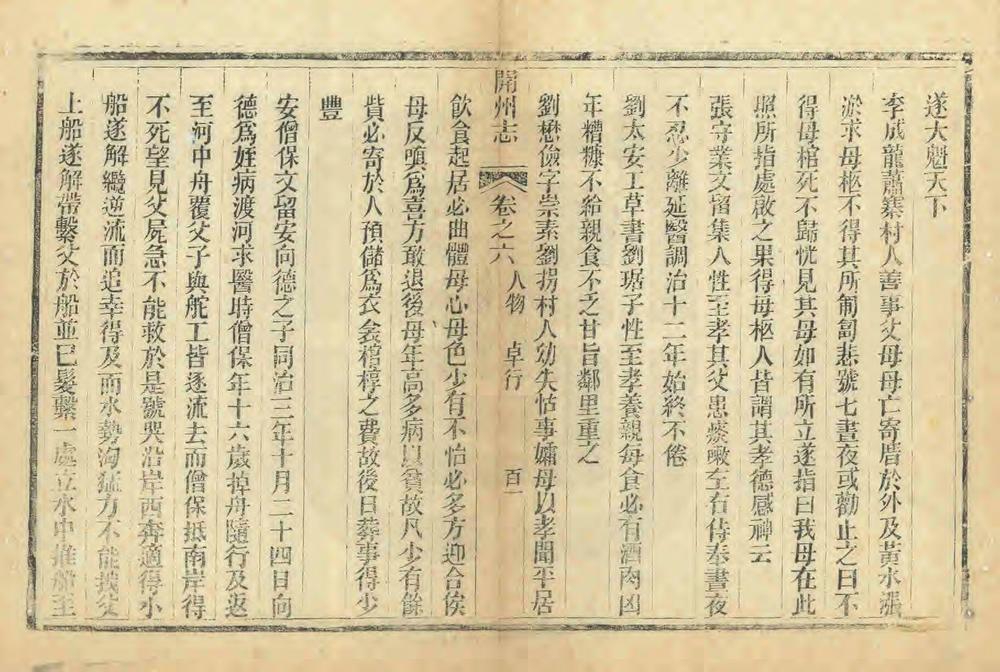 遂大魁天下
李成龍蕭寨村人善事父母母亡寄厝於外及黃水漲
淤求母柩不得其所匍匐悲號七晝夜或勸止之曰不
得母棺死不歸恍見其母如有所立遂指曰我母在此
照所指處啟之果得母柩人皆謂其孝德感神云
張守業文留集人性至孝其父患痰嗽左右侍奉晝夜
不忍少離延醫調治十二年始終不倦
劉太安工草書劉琚子性至孝養親每食必有酒肉凶
年糟糠不給親食不乏甘旨鄰里重之
劉懋儉字崇素劉拐村人幼失怙事孀母以孝聞平居
開州志 卷之六 人物 卓行 百一
飲食起居必曲體母心母色少有不怡必多方迎合俟
母反嗔爲喜方敢退後母年高多病以貧故凡少有餘
貲必寄於人預儲爲衣衾棺槨之費故後日葬事得少
豐
安僧保文留安向德之子同治三年十月二十四日向
德爲姪病渡河求醫時僧保年十六歲掉舟隨行及返
至河中舟覆父子與舵工皆逐流去而僧保抵南岸得
不死望見父屍急不能救於是號哭沿岸西奔適得小
船遂解纜逆流而追幸得及而水勢洶猛方不能援父
上船遂解帶繫父於船並已髮繫一處立水中推船至